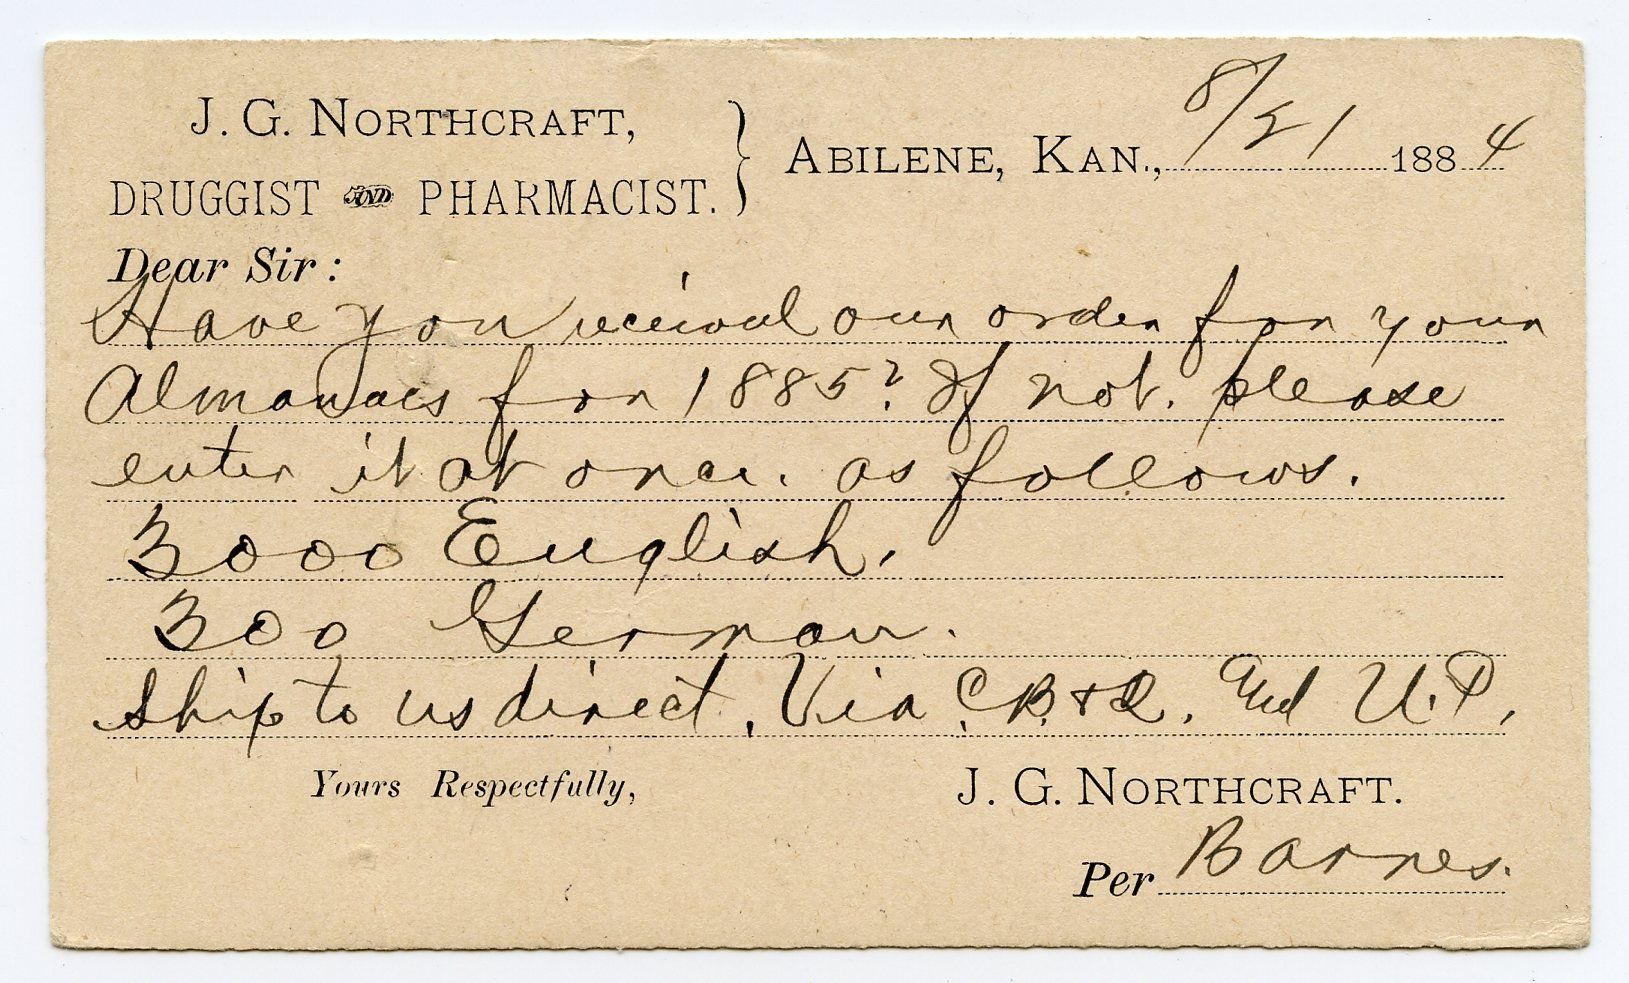 J. G. NORTHCRAFT,
DRUGGIST AND PHARMACIST.
ABILENE, KAN., 8/21 1884
Dear Sir:
Have you received our order for your
Almanacs for 1885? If not. please
enter it at once. as follows.
3000 English.
300 German.
Ship to us direct, Via C.B.&Q. And U.P.
Yours Respectfully,
J. G. NORTHCRAFT.
Per Barnes.